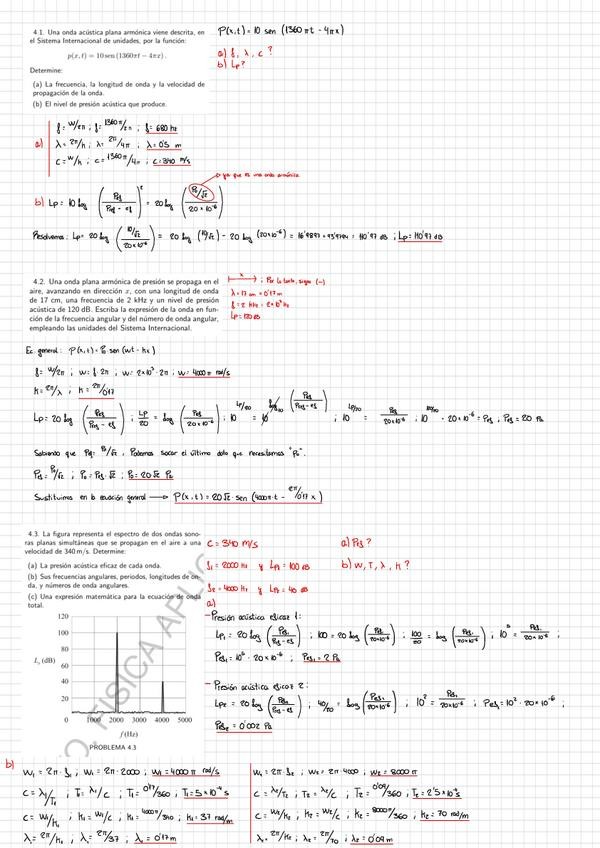 4.1. Una onda acústica plana armónica viene descrita, en
el Sistema Internacional de unidades, por la función:
p(x, t) = 10 sen (1360πt − 4πx) .
Determine:
(a) La frecuencia, la longitud de onda y la velocidad de
propagación de la onda.
(b) El nivel de presión acústica que produce.
P(x,t) = 10 sen (1360πt - 4πx)
a) f, λ, c ?
b) Lp?
a) f = W/2π ; f = 1360π/2π ; f = 680 Hz
λ = 2π/k ; λ = 2π/4π ; λ = 0'5 m
c = W/k ; c = 1360π/4π ; c = 340 m/s
ya que es una onda armónica
b) Lp = 10 log (Pef/Pref-ef)² = 20 log (P0/√2 / 20×10⁻⁶)
Resolvemos: Lp = 20 log (10/√2 / 20×10⁻⁶) = 20 log (10/√2) - 20 log (20×10⁻⁶) = 16'9897 + 93'9794 = 110'97 dB ; Lp = 110'97 dB
4.2. Una onda plana armónica de presión se propaga en el
aire, avanzando en dirección x, con una longitud de onda
de 17 cm, una frecuencia de 2 kHz y un nivel de presión
acústica de 120 dB. Escriba la expresión de la onda en fun-
ción de la frecuencia angular y del número de onda angular,
empleando las unidades del Sistema Internacional.
x ; Por lo tanto, signo (-)
λ = 17 cm = 0'17 m
f = 2 kHz = 2×10³ Hz
Lp = 120 dB
Ec. general: P(x,t) = P0 · sen (wt - kx)
f = W/2π ; w = f · 2π ; w = 2×10³ · 2π ; w = 4000π rad/s
k = 2π/λ ; k = 2π/0'17
Lp = 20 log (Pef/Pref-ef) ; Lp/20 = log (Pef/20×10⁻⁶) ; 10^Lp/20 = 10^log (Pef/Pref-ef) ; 10^Lp/20 = Pef/20×10⁻⁶ ; 10^120/20 · 20×10⁻⁶ = Pef ; Pef = 20 Pa
Sabiendo que Pef = P0/√2 , Podemos sacar el último dato que necesitamos "P0".
Pef = P0/√2 ; P0 = Pef · √2 ; P0 = 20√2 Pa
Sustituimos en la ecuación general → P(x,t) = 20√2 · sen (4000π·t - 2π/0'17 x)
4.3. La figura representa el espectro de dos ondas sono-
ras planas simultáneas que se propagan en el aire a una
velocidad de 340 m/s. Determine:
(a) La presión acústica eficaz de cada onda.
(b) Sus frecuencias angulares, periodos, longitudes de on-
da, y números de onda angulares.
(c) Una expresión matemática para la ecuación de onda
total.
c = 340 m/s
f1 = 2000 Hz y Lp1 = 100 dB
f2 = 4000 Hz y Lp2 = 40 dB
a) Pef ?
b) W, T, λ, k ?
120
100
80
Lp (dB) 60
40
20
0 1000 2000 3000 4000 5000
f (Hz)
PROBLEMA 4.3
a)
- Presión acústica eficaz 1:
Lp1 = 20 log (Pef1/Pref-ef) ; 100 = 20 log (Pef1/20×10⁻⁶) ; 100/20 = log (Pef1/20×10⁻⁶) ; 10⁵ = Pef1/20×10⁻⁶ ;
Pef1 = 10⁵ · 20×10⁻⁶ ; Pef1 = 2 Pa
- Presión acústica eficaz 2:
Lp2 = 20 log (Pef2/Pref-ef) ; 40/20 = log (Pef2/20×10⁻⁶) ; 10² = Pef2/20×10⁻⁶ ; Pef2 = 10² · 20×10⁻⁶ ;
Pef2 = 0'002 Pa
b)
W1 = 2π · f1 ; W1 = 2π · 2000 ; W1 = 4000π rad/s
c = λ1/T1 ; T1 = λ1/c ; T1 = 0'17/360 ; T1 = 5×10⁻⁴ s
c = W1/k1 ; k1 = W1/c ; k1 = 4000π/340 ; k1 = 37 rad/m
λ1 = 2π/k1 ; λ1 = 2π/37 ; λ1 = 0'17m
W2 = 2π · f2 ; W2 = 2π · 4000 ; W2 = 8000π
c = λ2/T2 ; T2 = λ2/c ; T2 = 0'09/360 ; T2 = 2'5×10⁻⁴ s
c = W2/k2 ; k2 = W2/c ; k2 = 8000π/360 ; k2 = 70 rad/m
λ2 = 2π/k2 ; λ2 = 2π/70 ; λ2 = 0'09m
O. FÍSICA APLIC